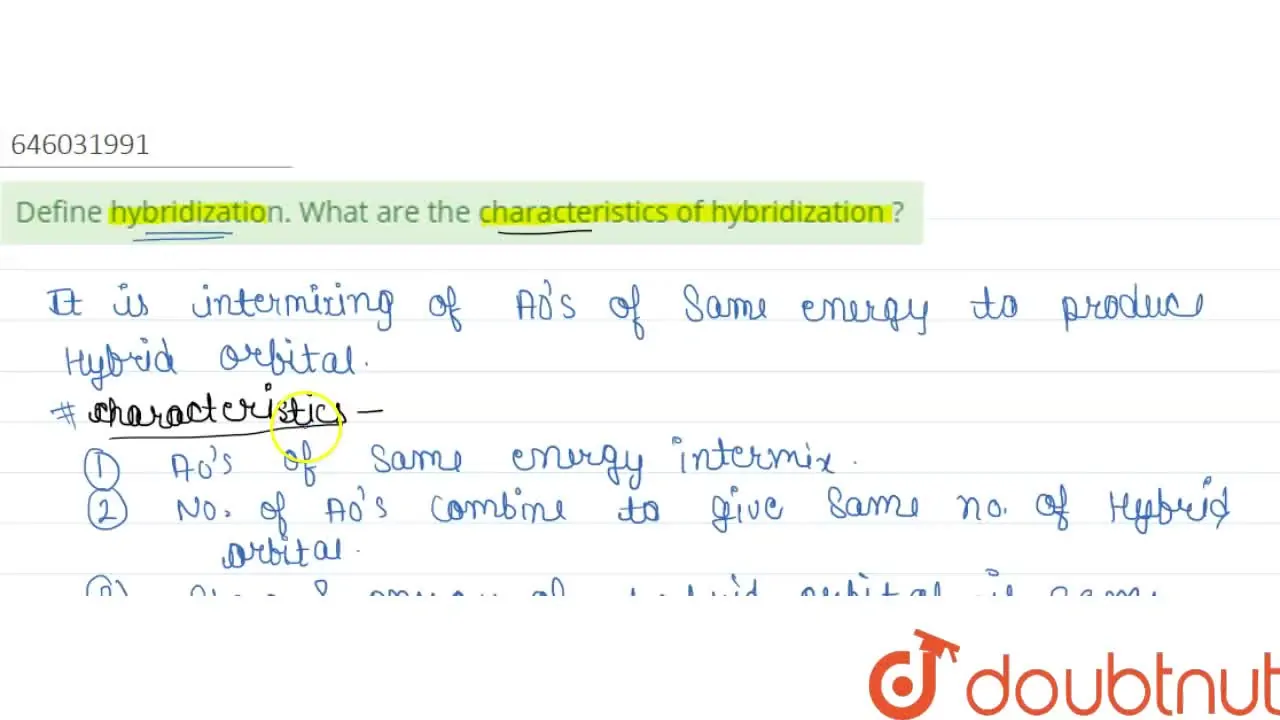 646031991
Define hybridization. What are the characteristics of hybridization ?
It is intermixing of AO's of Same energy to produce
Hybrid orbital.
# characteristics –
① AO's of same energy intermix.
② No. of AO's combine to give same no. of Hybrid
orbital.
orbital is same
doubtnut